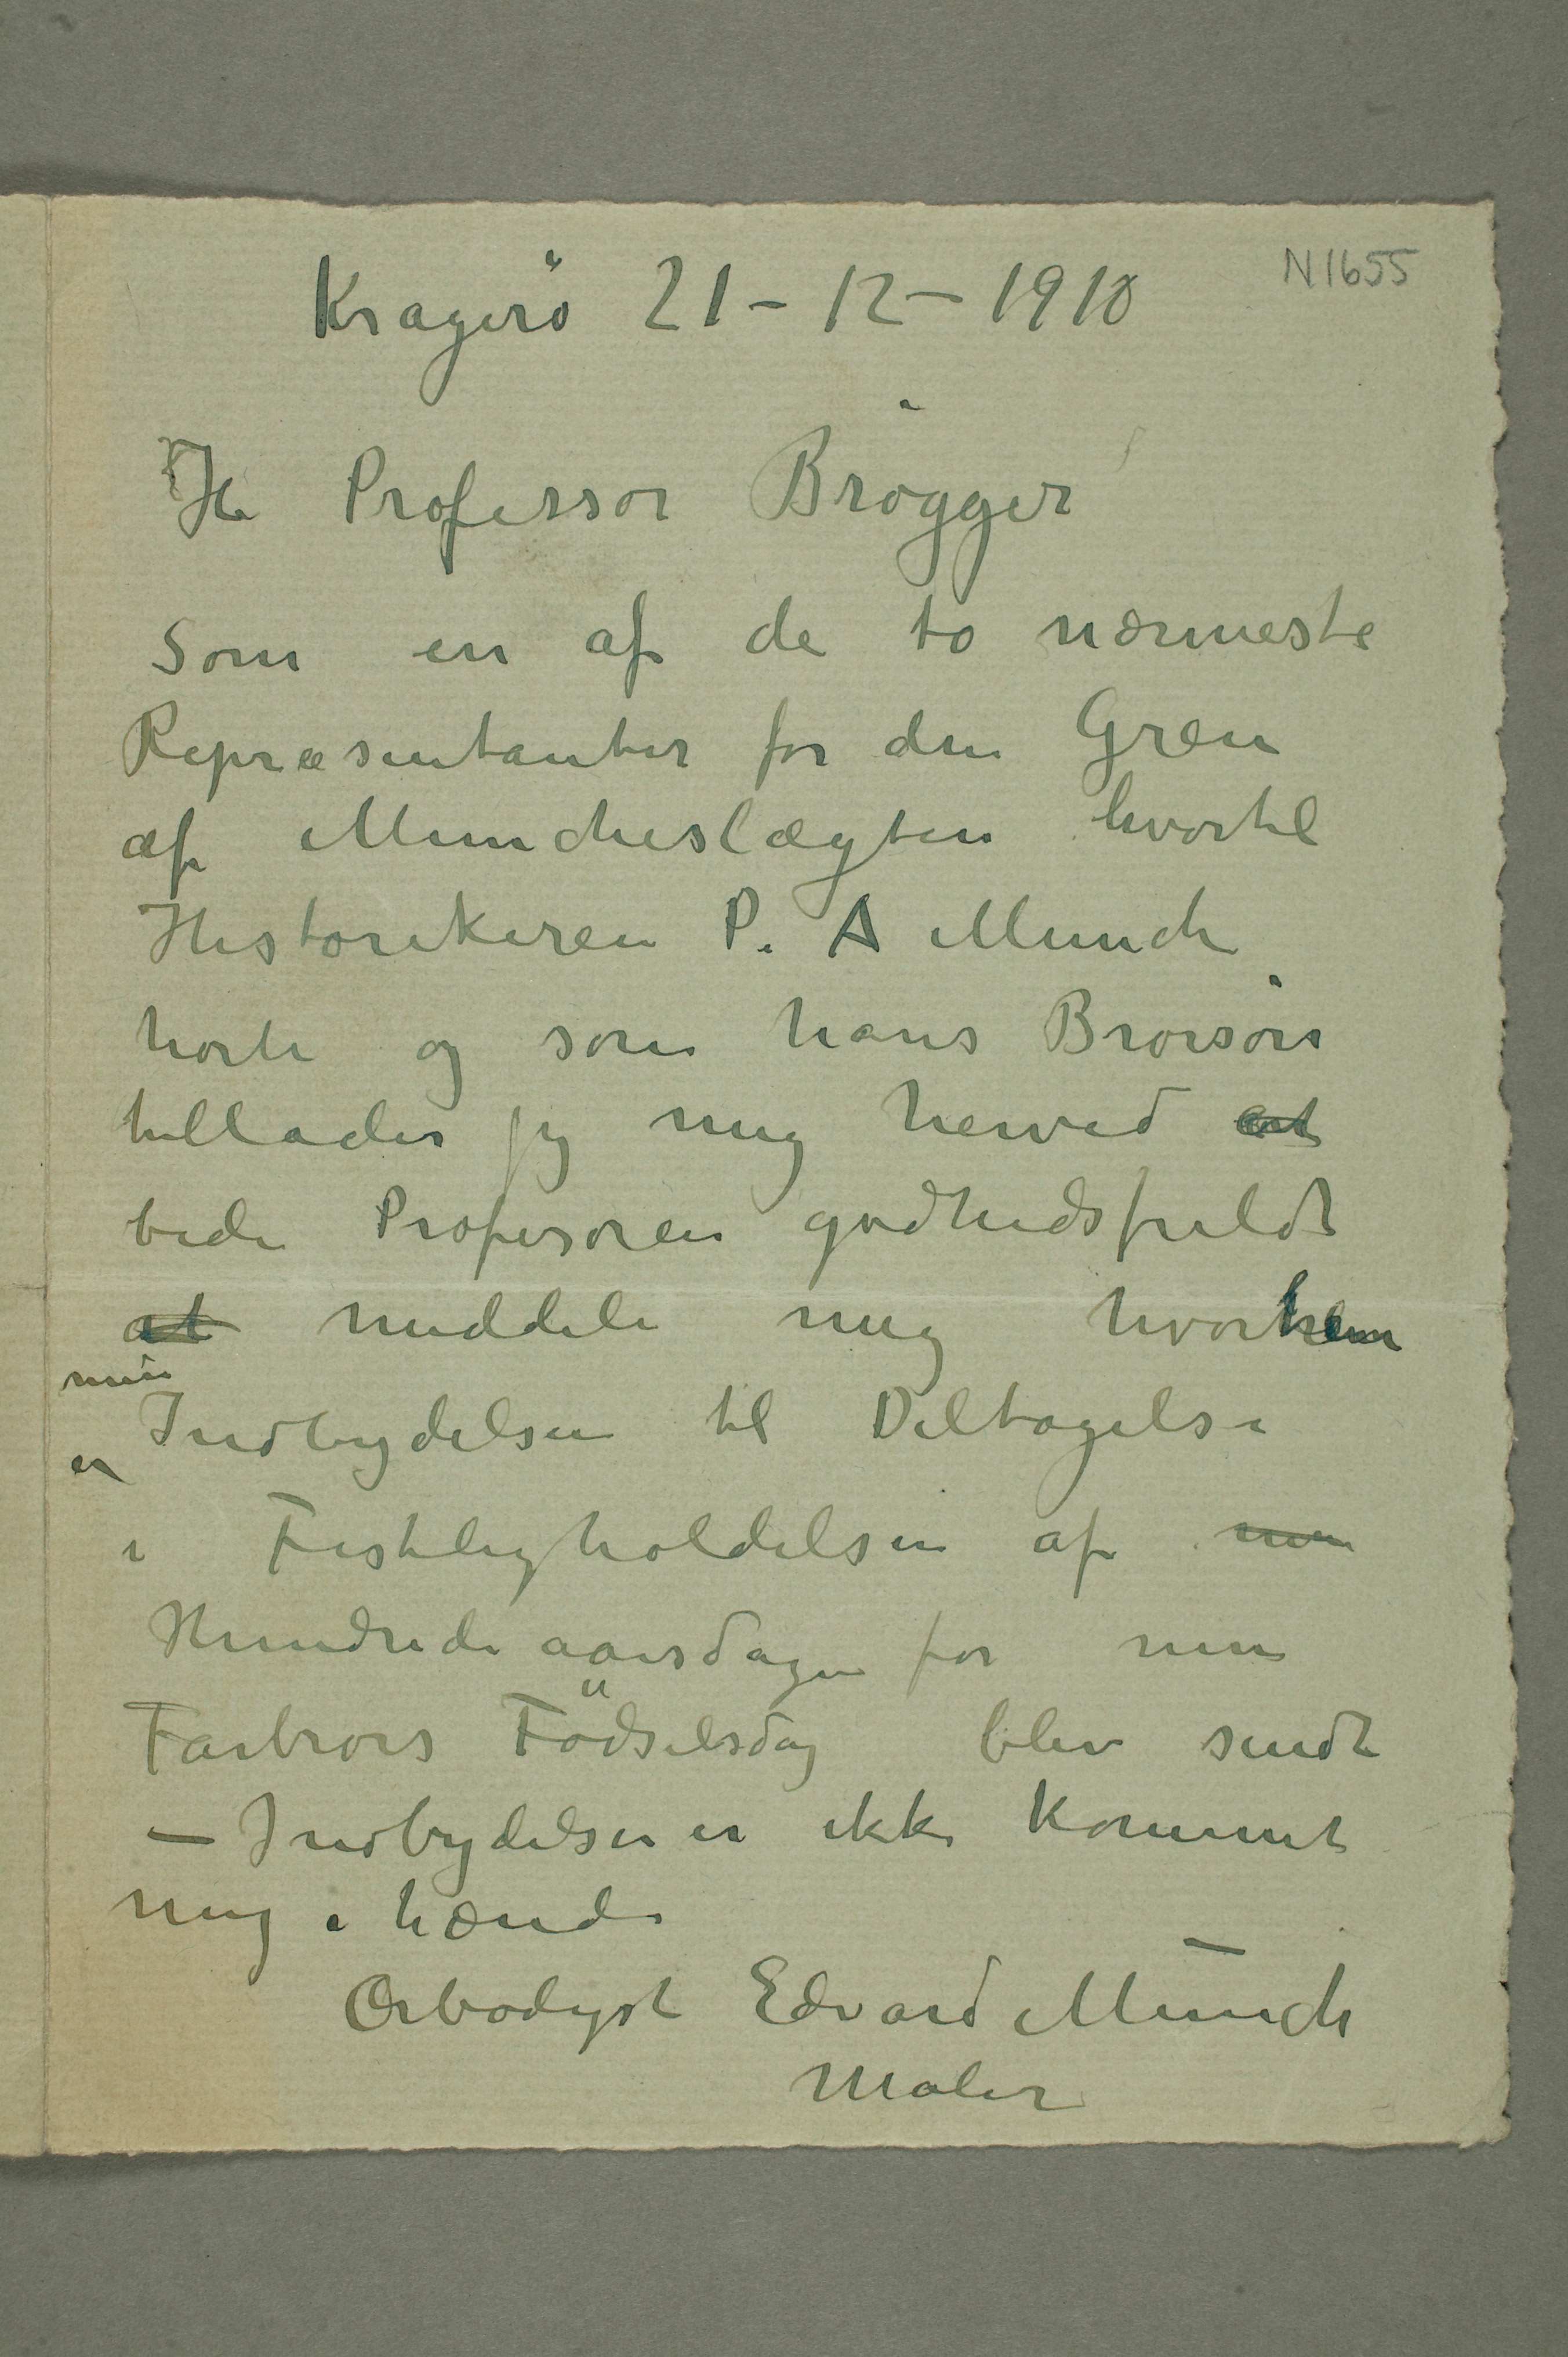 Kragerö 21-12-1910
N1655
Hr Professor Brögger
Som en af de to nærmeste
Repræsentanter for den Gren
af Muncheslægten hvortil
Historikeren P. A Munch
hørte og som hans Brorsön
tillader jeg mig herved at
bede Profesoren godhedsfuldt
at meddele mig hvorhen
min
Indbydelsen til Deltagelse
er
i Festligholdelsen af min
Hundredeaarsdagen for min
Farbrors Födselsdag blev sendt
– Indbydelsen er ikke kommet
mig i hænde
Ærbødigst Edvard Munch
Maler